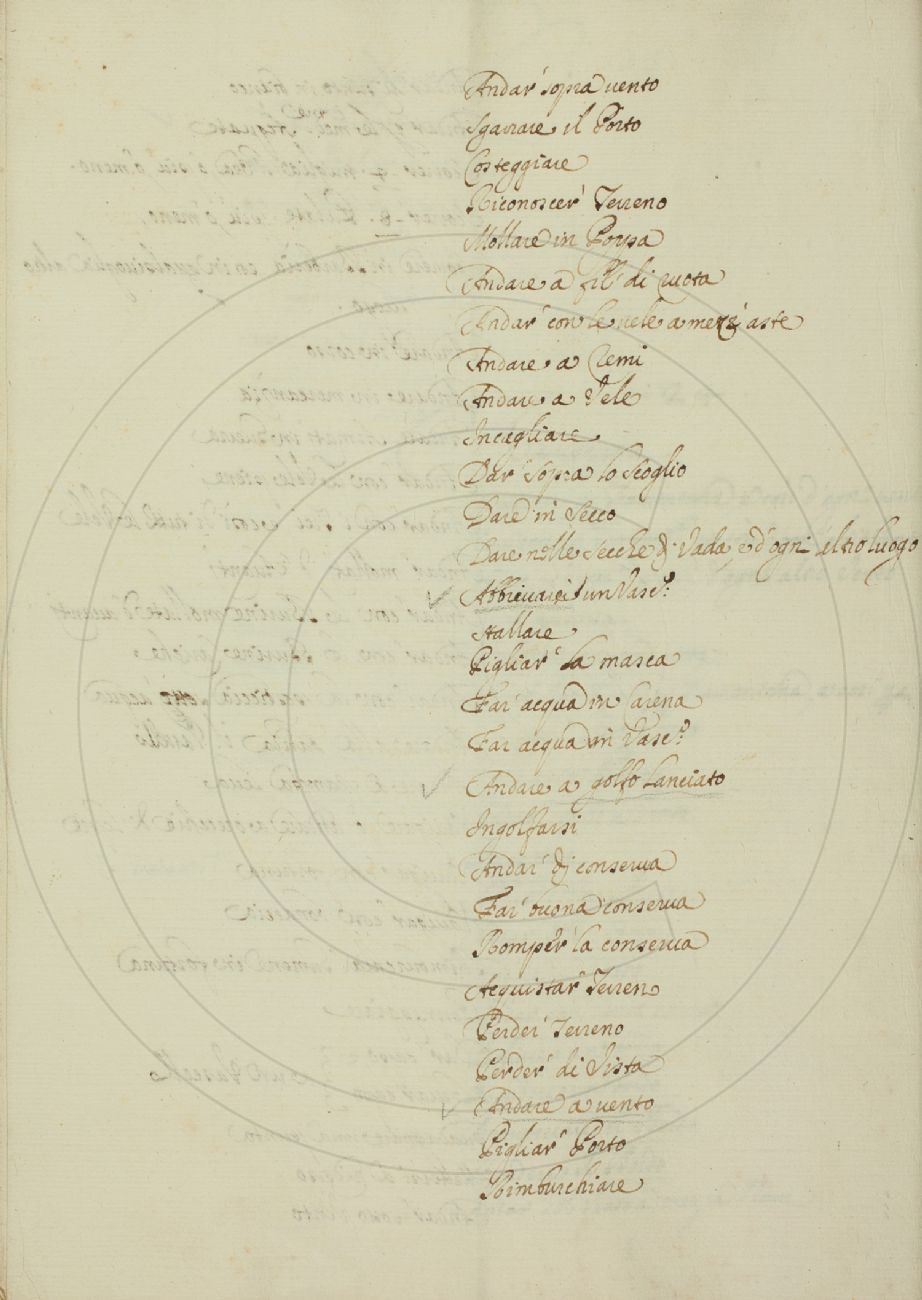 Andar' sopra vento
Sgarrare il Porto
Costeggiare
Riconoscer' Terreno
Mollare in Poppa
Andare a fil' di ruota
Andar' con le vele a mezz'aste
Andare a Remi
Andare a Vele
Incagliare
Dar' sopra lo Scoglio
Dare in Secco
Dare nelle Secche di Vada, e d'ogni altro luogo
un Vasc.º
Stallare
Pigliar' la marea
Far' acqua in Carena
Far acqua in Vasc.º
Andare a golfo Lanciato
Ingolfarsi
Andar' di conserva
Far' buona conserva
Romper' la conserva
Acquistar' Terreno
Perder' Terreno
Perder' di Vista
Andare a vento
Pigliar' Porto
Rimburchiare